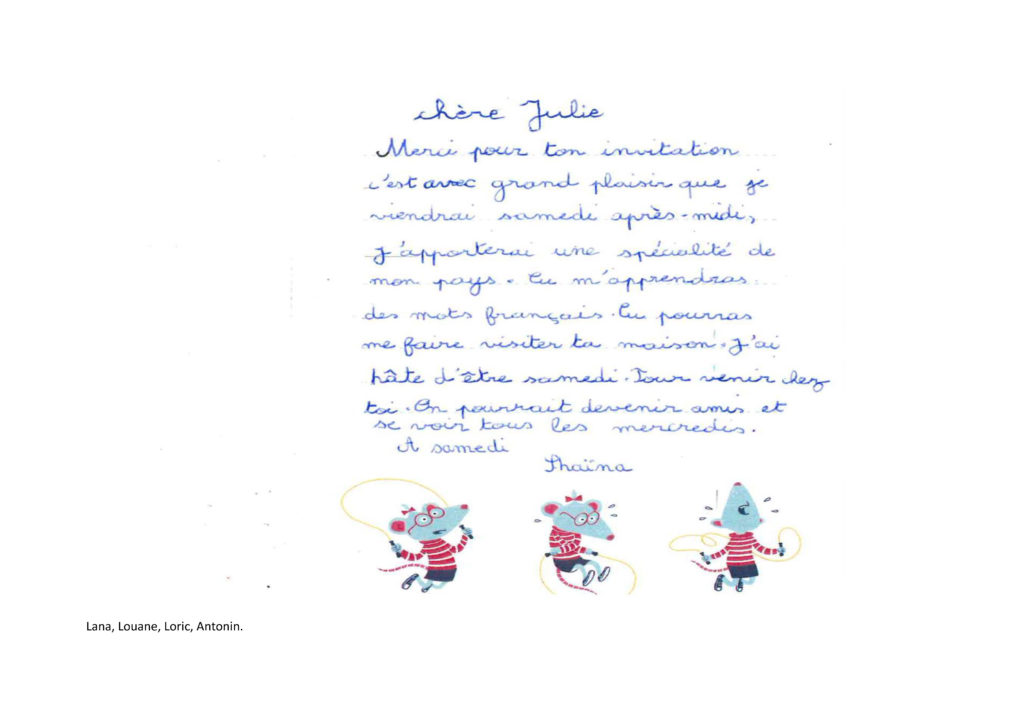 chère Julie
Merci pour ton invitation
c'est avec grand plaisir que je
viendrai samedi après-midi,
J'apporterai une spécialité de
mon pays. Tu m'apprendras
des mots français. Tu pourras
me faire visiter ta maison. J'ai
hâte d'être samedi. Pour venir chez
toi. On pourrait devenir amis et
se voir tous les mercredis.
A samedi
Shaïna
Lana, Louane, Loric, Antonin.